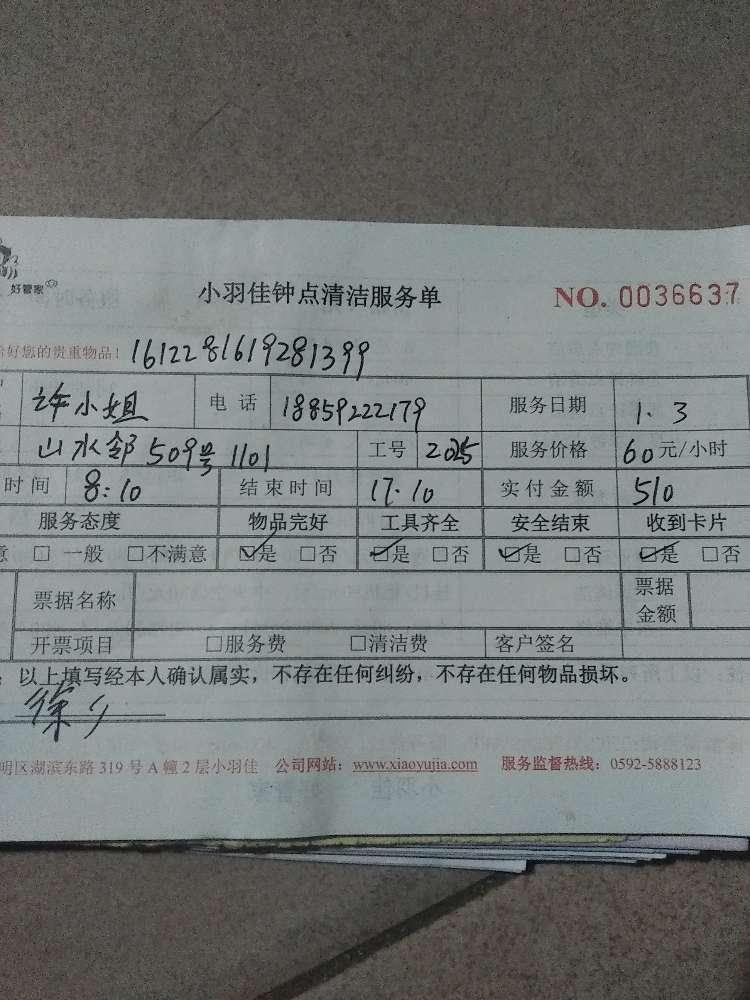 好管家
小羽佳钟点清洁服务单 NO. 0036637
好您的贵重物品！ 1612281619281399
许小姐 电话 18859222179 服务日期 1.3
山水邻509号1101 工号 2025 服务价格 60元/小时
时间 8:10 结束时间 17.10 实付金额 510
服务态度 物品完好 工具齐全 安全结束 收到卡片
意 □ 一般 □不满意 ☑是 □否 ☑是 □否 ☑是 □否 ☑是 □否
票据名称 票据金额
开票项目 □服务费 □清洁费 客户签名
：以上填写经本人确认属实，不存在任何纠纷，不存在任何物品损坏。
明区湖滨东路319号A幢2层小羽佳 公司网站：www.xiaoyujia.com 服务监督热线：0592-5888123